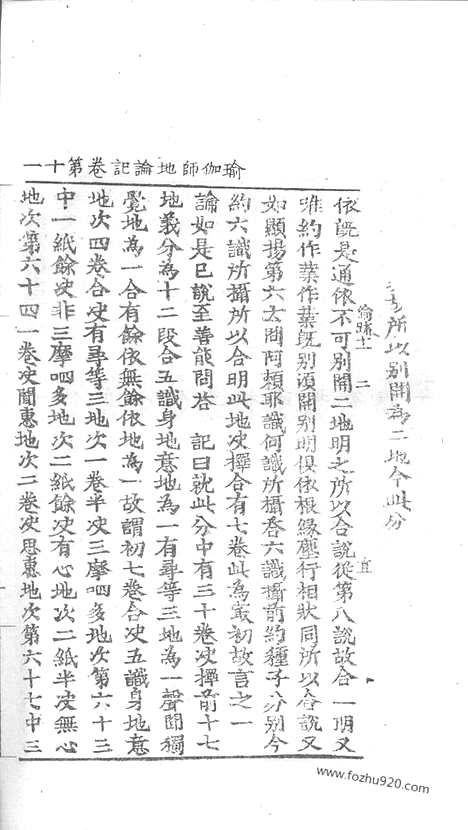 瑜伽師地論記卷第十一
所以别開為二地今此分
論疏十一 二 直
依旣是通依不可别開二地明之所以合說從第八說故合一明又
唯約作業作業旣别須開别明俱依根緣塵行相狀同所以合說又
如顯揚第六太問阿頼耶識何識所攝荅六識攝前約種子分别今
約六識所攝所以合明此地决擇合有七卷此為最初故言之一
論如是已說至善能問荅 記曰就此分中有三十卷决擇前十七
地義分為十二段合五識身地意地為一有尋等三地為一聲聞獨
覺地為一合有餘依無餘依地為一故謂初七卷合决五識身地意
地次四卷合决有尋等三地次一卷半决三摩呬多地次第六十三
中一紙餘决非三摩呬多地次二紙餘决有心地次二紙半决無心
地次第六十四一卷决聞惠地次二卷决思惠地次第六十七中三
www.fozhu920.com